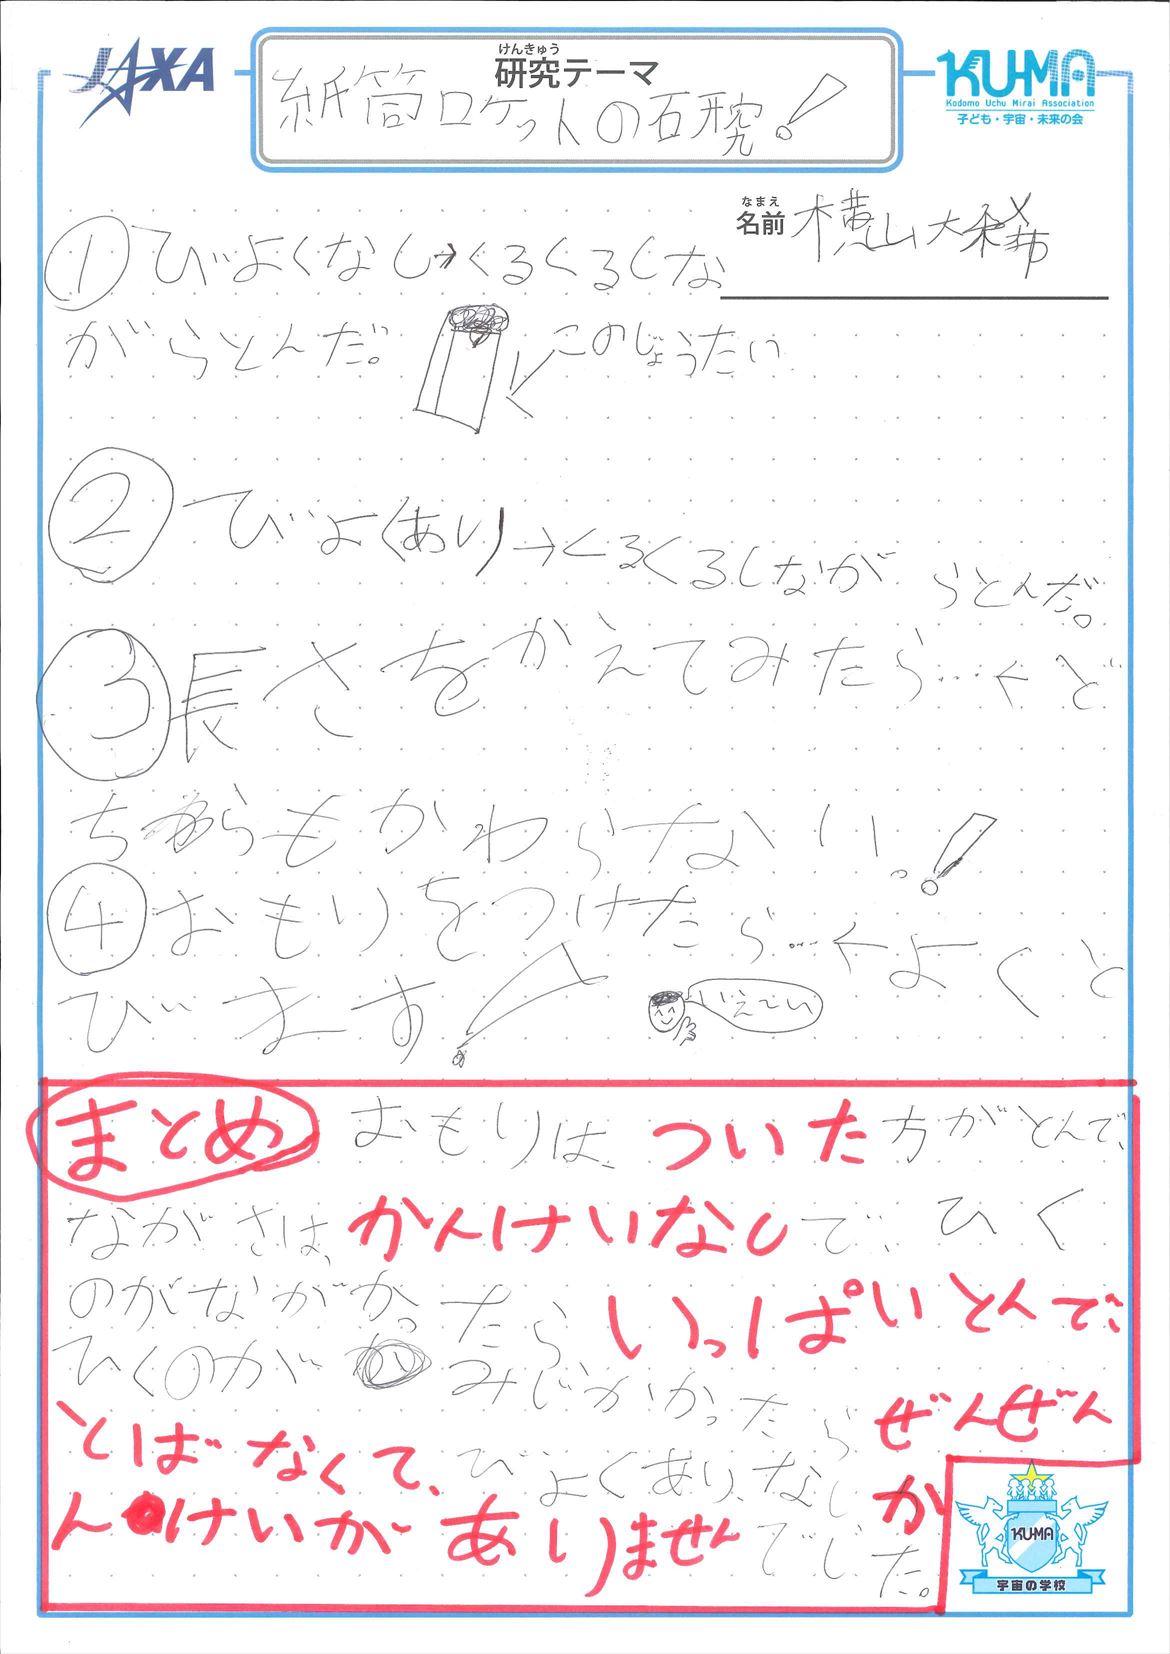 JAXA
けんきゅう
研究テーマ
KU-MA
Kodomo Uchu Mirai Association
子ども・宇宙・未来の会
紙筒ロケットの研究!
なまえ
名前 横山大稀
① びよくなし→くるくるしな
がらとんだ。 このじょうたい
② びよくあり→くるくるしながらとんだ。
③ 長さをかえてみたら…←ど
ちらもかわらない。!
④ おもりをつけたら…←よくと
びます! いえーい
まとめ おもりは、ついた方がとんで、
ながさは、かんけいなしで、ひく
のがながかったら、いっぱいとんで、
ひくのがみじかかったらぜんぜん
とばなくて、びよくあり、なしか
んけいがありませんでした。
KU-MA
宇宙の学校